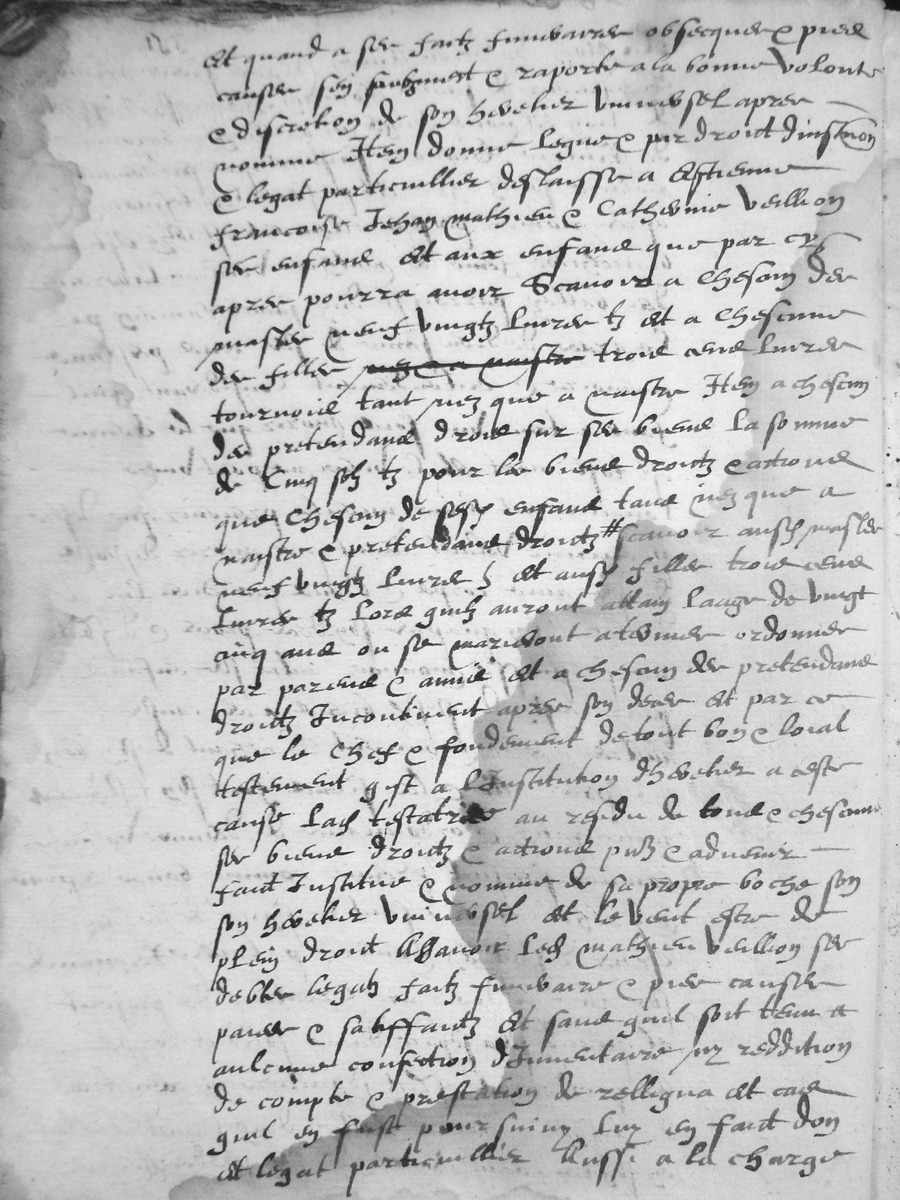 Et quand a ses faitz funeraires obseques & pies
causes sen soubzmect & raporte a la bonne volonte
& discretion de son heretier universel apres
nomme Item donne legue & par droict dinstion
& legat particullier deslaisse a Estienne
francoise Jehan mathieu & Catherine veillion
ses enfans et aux enfans que par cy
apres pourra avoir Scavoir a Chescun des
masles neuf vingtz livres tz et a Chescune
des filles nez & a naistre trois cens livres
tournois tant nez que a naistre Item a chescun
des pretendans drois sur ses biens la somme
de Cinq solz tz pour les biens droitz & actions
que Chescun de sesd enfans tans nez que a
naistre & pretendans droitz # scavoir ausd masles
neuf vingtz livres tz et ausd filles trois cens
livres tz lors quilz auront attain laage de vingt
cinq ans ou se marieront a termes ordonnes
par parens & amis et a chescun des pretendans
droitz Incontinent apres son deces et par ce
que le Chef & fondement de tout bon & loial
testement gist a lInstitution dheretier a ceste
cause lad testatrice au residu de tous & chescuns
ses biens droitz & actions pnz & advenir
faict Institue & nomme de sa propre boche son
son heretier universel et le veut estre de
plein droict Assavoir led mathieu veillion ses
debtes legatz faitz funeraires & pies causes
paies & satiffaictz et sans quil soit tenu a
aulcune confection dInventaire ny reddition
de compte & prestation de relliqua et cas
quil en fust poursuivy luy en faict don
et legat particullier Aussi a la charge